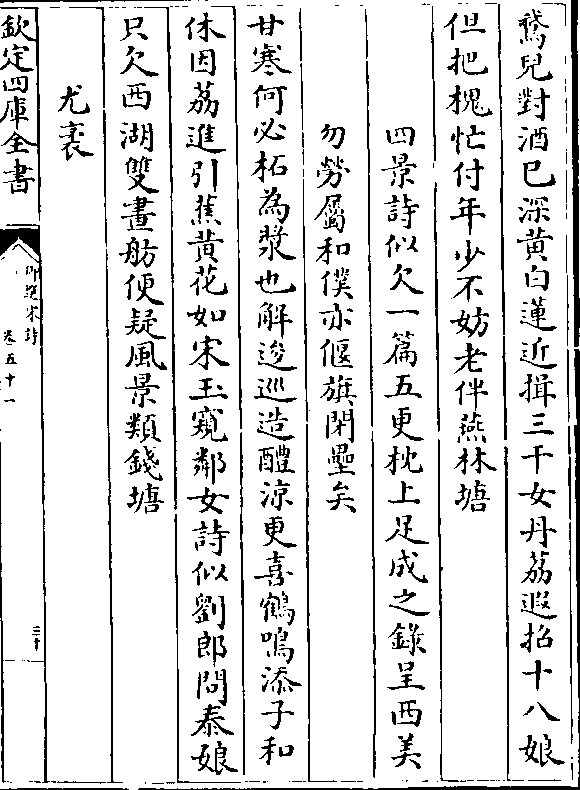 鵞兒對酒已深黄白蓮近揖三千女丹荔遐招十八娘
但把槐忙付年少不妨老伴燕林塘
四景詩似欠一篇五更枕上足成之錄呈西美
勿勞屬和僕亦偃旗閉壘矣
甘寒何必柘為漿也解逡巡造醴涼更喜鶴鳴添子和
休因荔進引蕉黄花如宋玉窺鄰女詩似劉郎問泰娘
只欠西湖雙畫舫便疑風景類錢塘
尤袤
欽定四庫全書
御選宋詩
卷五十一
三十